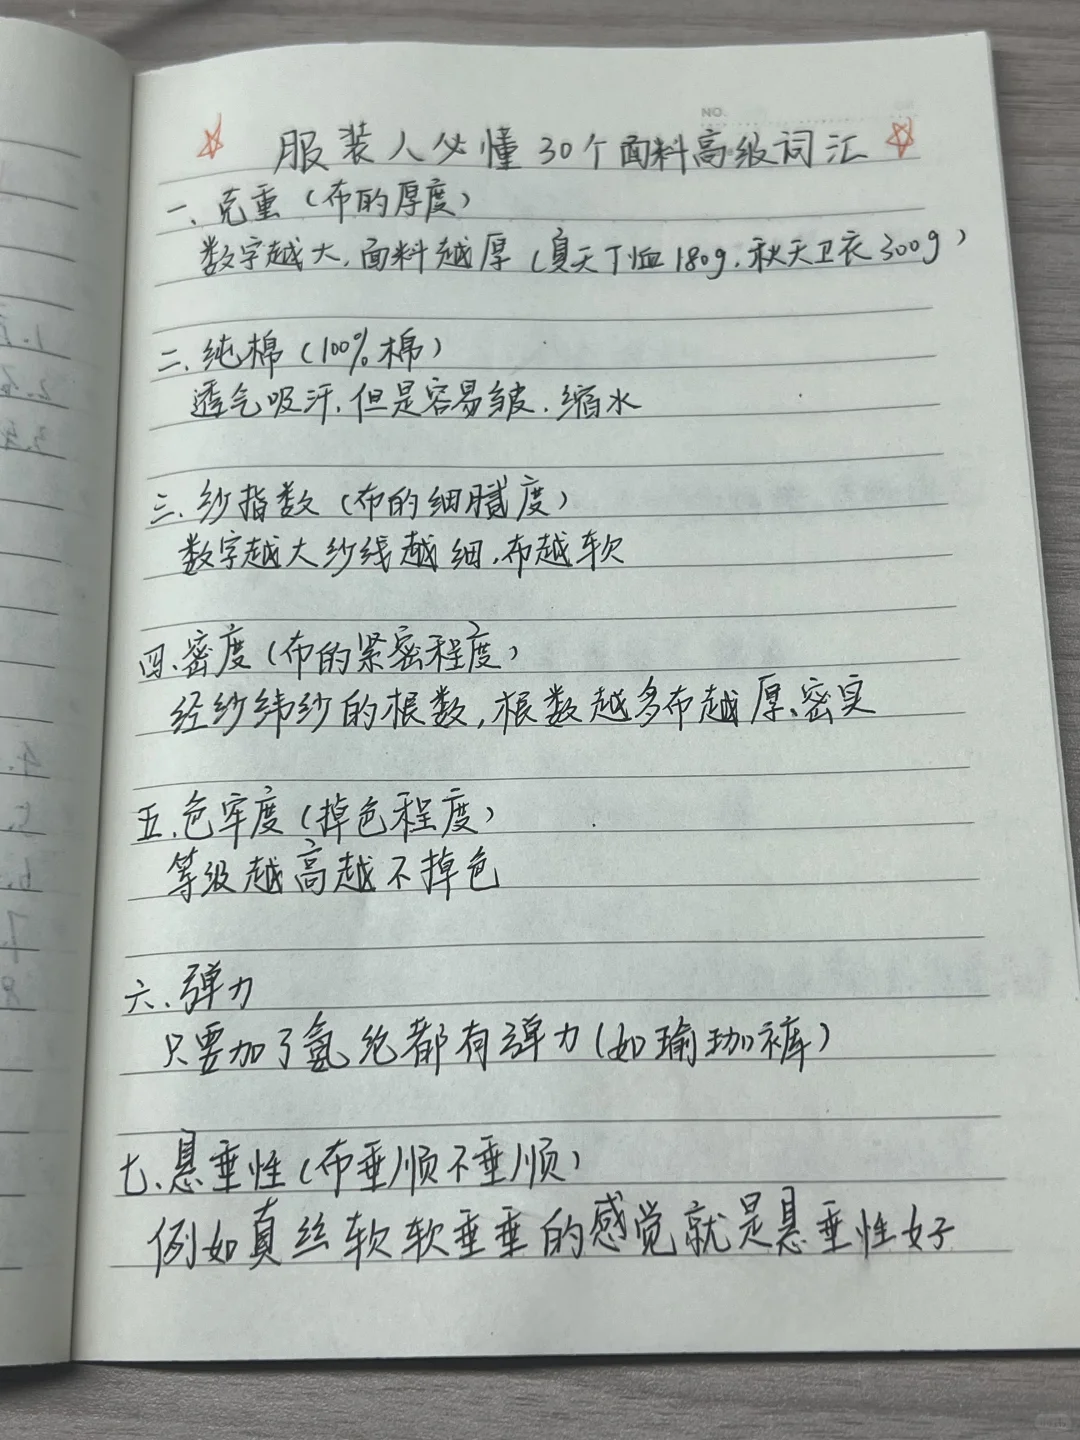 NO.
服装人必懂30个面料高级词汇
一、克重（布的厚度）
数字越大，面料越厚（夏天T恤180g，秋天卫衣300g）
二、纯棉（100%棉）
透气吸汗，但是容易皱、缩水
三、纱指数（布的细腻度）
数字越大纱线越细，布越软
四、密度（布的紧密程度）
经纱纬纱的根数，根数越多布越厚、密实
五、色牢度（掉色程度）
等级越高越不掉色
六、弹力
只要加了氨纶都有弹力（如瑜珈裤）
七、悬垂性（布垂顺不垂顺）
例如真丝软软垂垂的感觉就是悬垂性好